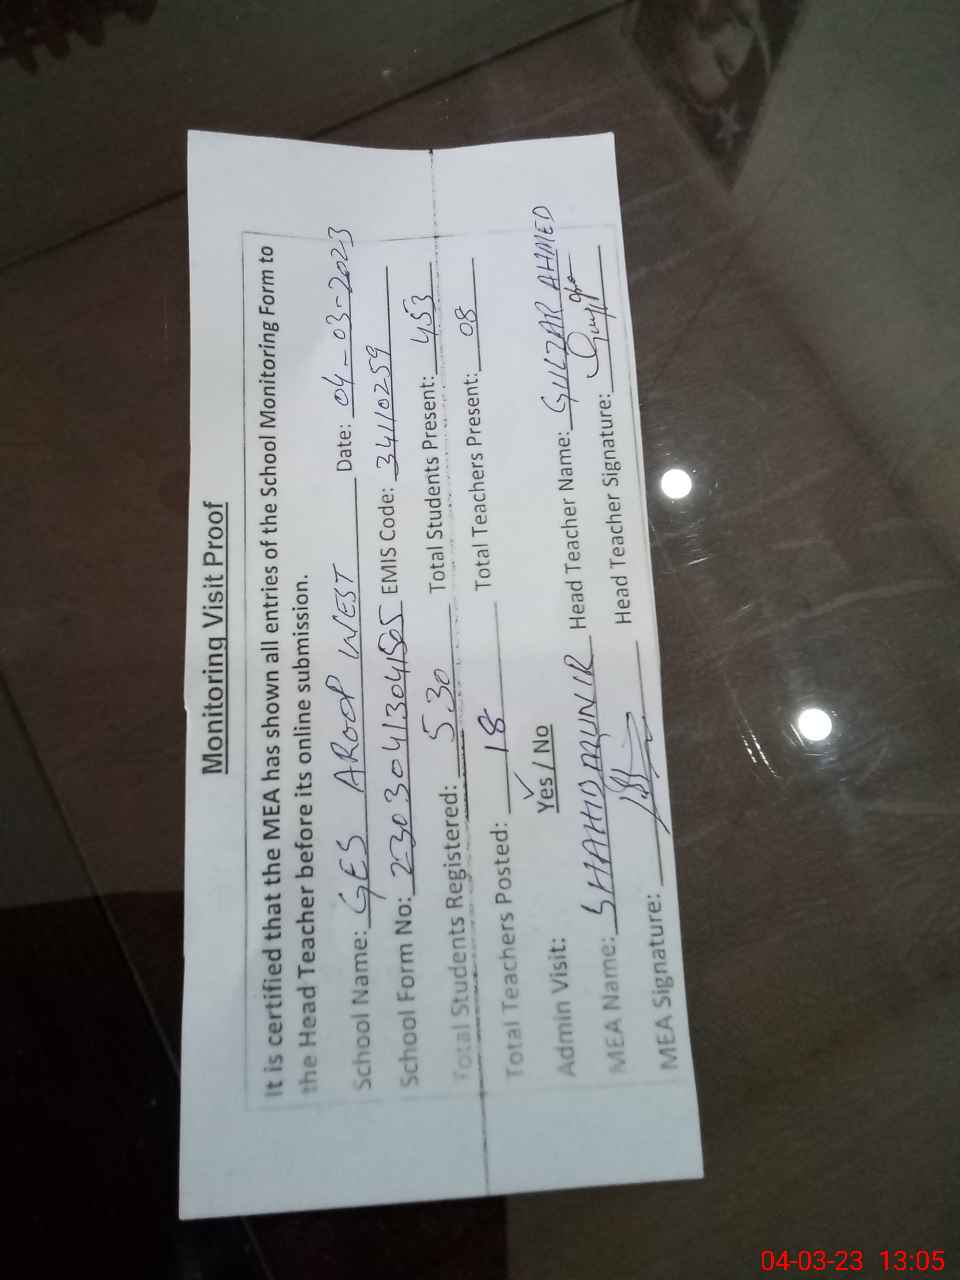 Monitoring Visit Proof
It is certified that the MEA has shown all entries of the School Monitoring Form to
the Head Teacher before its online submission.
School Name: GES AROOP WEST Date: 04-03-2023
School Form No: 23030413041505 EMIS Code: 34110259
Total Students Registered: 530 Total Students Present: 453
Total Teachers Posted: 18 Total Teachers Present: 08
Admin Visit: Yes / No
MEA Name: SHAHID MUNIR Head Teacher Name: GULZAR AHMED
MEA Signature: Head Teacher Signature:
04-03-23 13:05